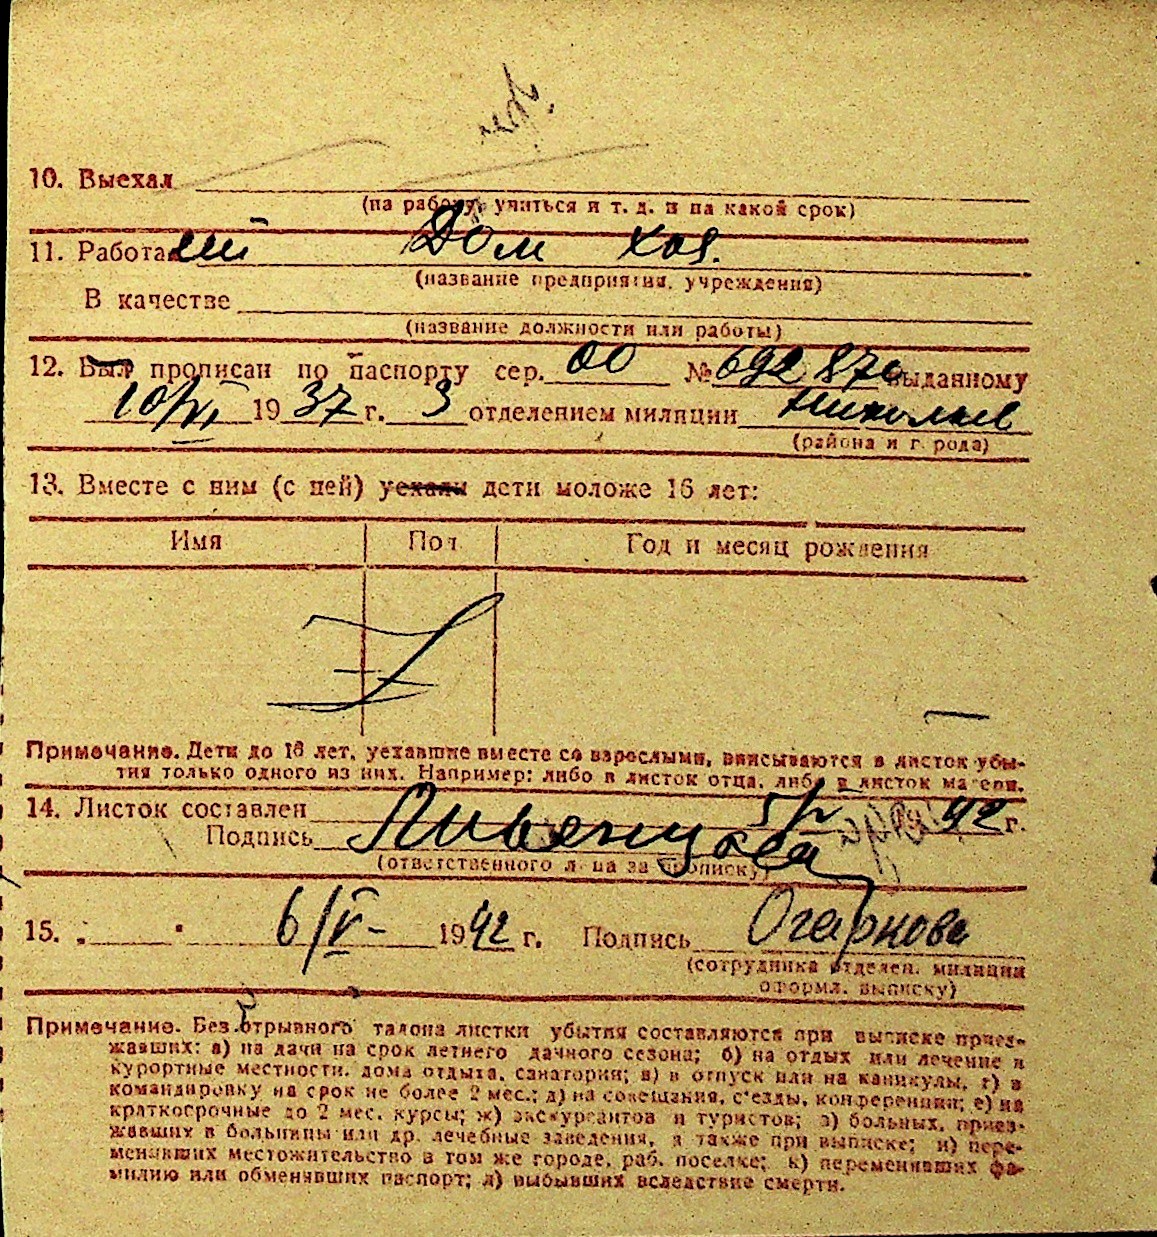 10. Выехал
(на работу, учиться и т. д. и на какой срок)
11. Работа Дом хоз.
(название предприятия, учреждения)
В качестве
(название должности или работы)
12. Был прописан по паспорту сер. 00 № 692870 выданному
10/VI 1937 г. 3 отделением милиции Николаев
(района и города)
13. Вместе с ним (с ней) уехали дети моложе 16 лет:
Имя Пол Год и месяц рождения
Примечание. Дети до 16 лет, уехавшие вместе со взрослыми, вписываются в листок убы-
тия только одного из них. Например: либо в листок отца, либо в листок матери.
14. Листок составлен 5/V 42 г.
Подпись
(ответственного лица за прописку)
15. 6/V- 1942 г. Подпись Огаркова
(сотрудника отделен. милиции
оформл. выписку)
Примечание. Без отрывного талона листки убытия составляются при выписке приез-
жавших: а) на дачи на срок летнего дачного сезона; б) на отдых или лечение в
курортные местности, дома отдыха, санатории; в) в отпуск или на каникулы, г) в
командировку на срок не более 2 мес.; д) на совещания, съезды, конференции; е) на
краткосрочные до 2 мес. курсы; ж) экскурсантов и туристов; з) больных, приез-
жавших в больницы или др. лечебные заведения, а также при выписке; и) пере-
менивших местожительство в том же городе, раб. поселке; к) переменивших фа-
милию или обменявших паспорт; л) выбывших вследствие смерти.